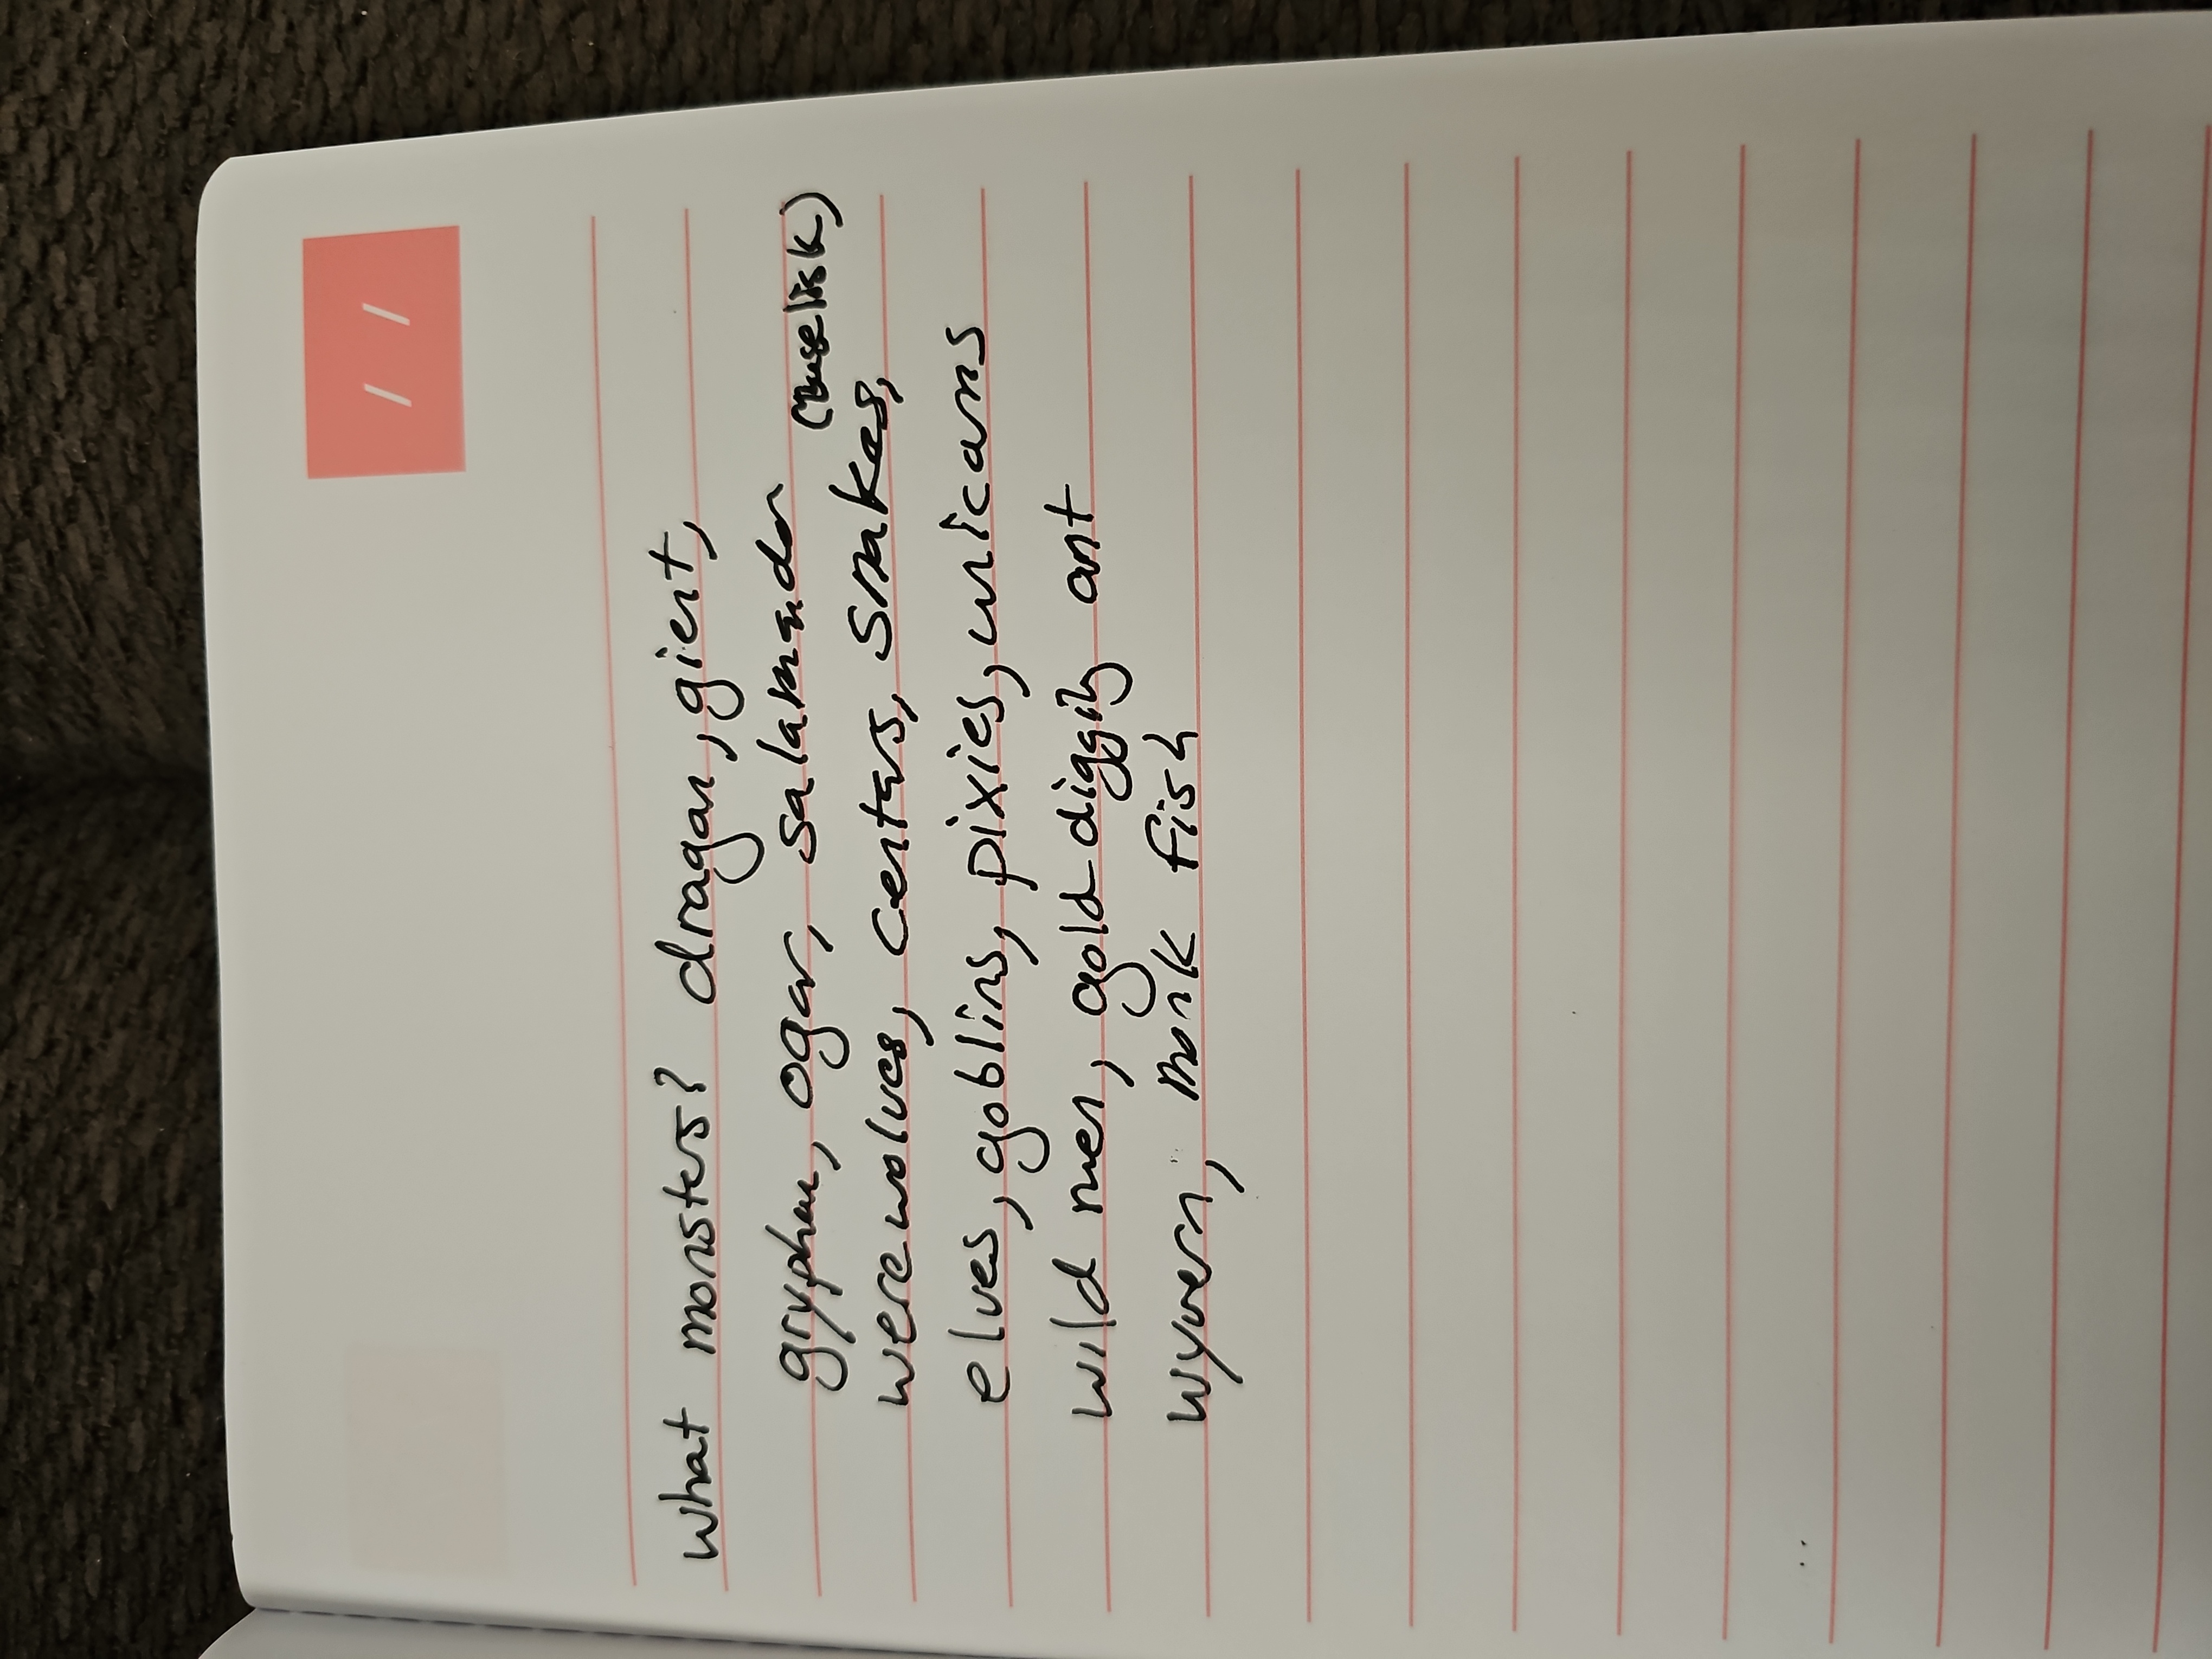 What monsters? dragon, gient,
gryphon, ogar, salamander
werewolves, centars, snakes, (baselisk)
elves, goblins, pixies, unicorns
wild men, gold diggig ant
wyvern, monk fish